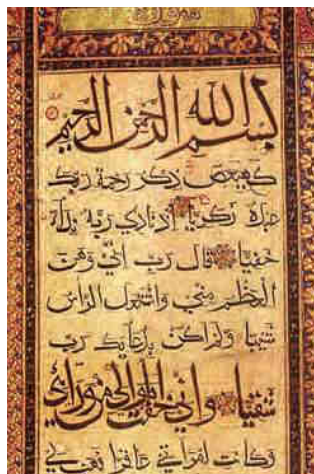 بسم الله الرحمن الرحيم
كهيعص ذكر رحمة ربك
عبده زكريا إذ نادى ربه نداء
خفيا قال رب إني وهن
العظم مني واشتعل الرأس
شيبا ولم أكن بدعائك رب
شقيا وإني خفت الموالي من ورائي
وكانت امرأتي عاقرا فهب لي